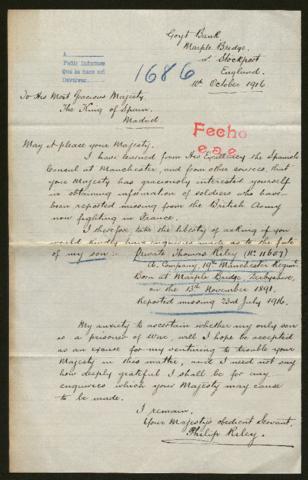 Goyt Bank,
Marple Bridge.
Nr Stockport
England.
10th October 1916
A
Pedir Informes
1686
To His Most Gracious Majesty,
The King of Spain.
Madrid
Fecho
May it please your Majesty.
I have learned from His Excellency the Spanish
Consul at Manchester, and from other sources, that
your Majesty has graciously interested yourself
in obtaining information of soldiers who have
been reported missing from the British Army
now fighting in France.
I therefore take the liberty of asking if you
would kindly have enquiries made as to the fate
of my son:- Private Thomas Riley (No 11607)
A. Company, 19th Manchester Regim
Born at Marple Bridge Derbyshire,
on the 13th November 1891.
Reported missing 23rd July 1916.
My anxiety to ascertain whether my only son
is a prisoner of War, will I hope be accepted
as an excuse for my venturing to trouble your
Majesty in this matter, and I need not say
how deeply grateful I shall be for any
enquiries which your Majesty may cause
to be made.
I remain.
Your Majesty's obedient Servant,
Philip Riley.